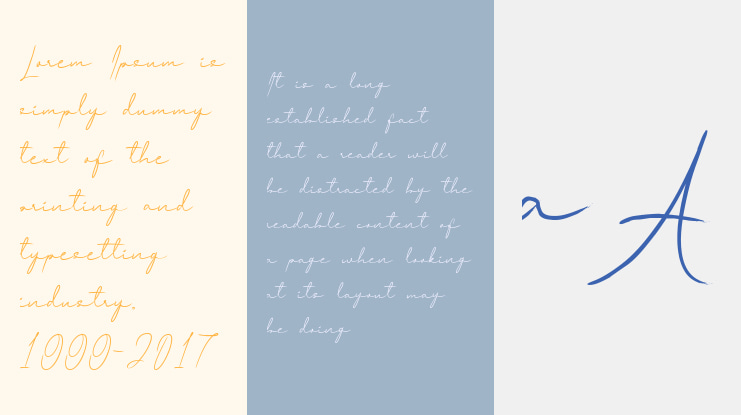 Lorem Ipsum is
simply dummy
text of the
printing and
typesetting
industry.
1999-2017
It is a long
established fact
that a reader will
be distracted by the
readable content of
a page when looking
at its layout may
be doing
a A